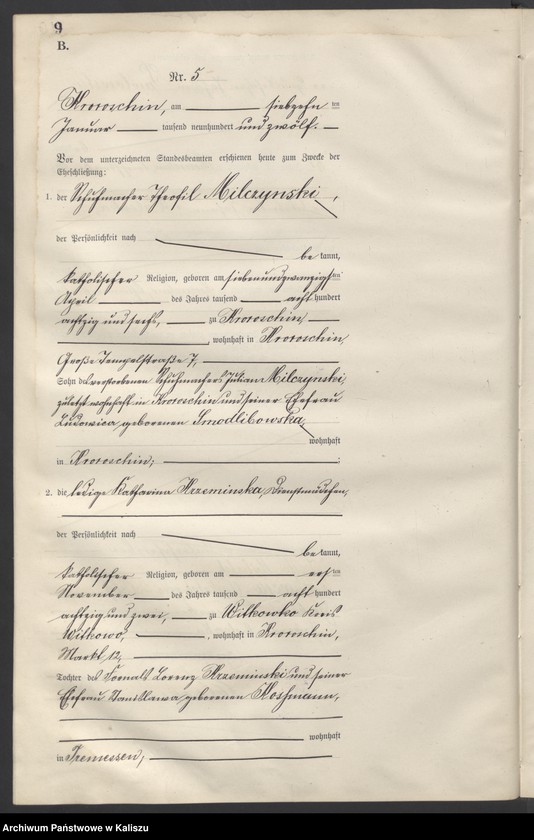 9
B.
Nr. 5
Krotoschin, am siebzehn ten
Januar tausend neunhundert und zwölf.
Vor dem unterzeichneten Standesbeamten erschienen heute zum Zwecke der
Eheschließung:
1. der Schuhmacher Theofil Milczynski,
der Persönlichkeit nach
be kannt,
katholischer Religion, geboren am siebenundzwanzigsten
April des Jahres tausend acht hundert
achtzig und sechs, zu Krotoschin
, wohnhaft in Krotoschin
Große Tempelstraße 7,
Sohn des verstorbenen Schuhmachers Julian Milczynski,
zuletzt wohnhaft in Krotoschin und seiner Ehefrau
Ludowica geborenen Smodlibowska,
wohnhaft
in Krotoschin;
2. die ledige Katharina Krzeminska, Dienstmädchen,
der Persönlichkeit nach
be kannt,
katholischer Religion, geboren am ersten
November des Jahres tausend acht hundert
achtzig und zwei, zu Witkowko Kreis
Witkowo, , wohnhaft in Krotoschin,
Markt 12,
Tochter des Lorenz Krzeminski und seiner
Ehefrau Stanislawa geborenen
wohnhaft
in Tremessen,
Archiwum Państwowe w Kaliszu